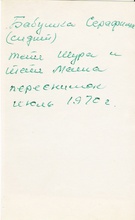 Бабушка Серафима
(сидит)
тётя Шура и
тётя Маша
переснимок
июль 1970 г.